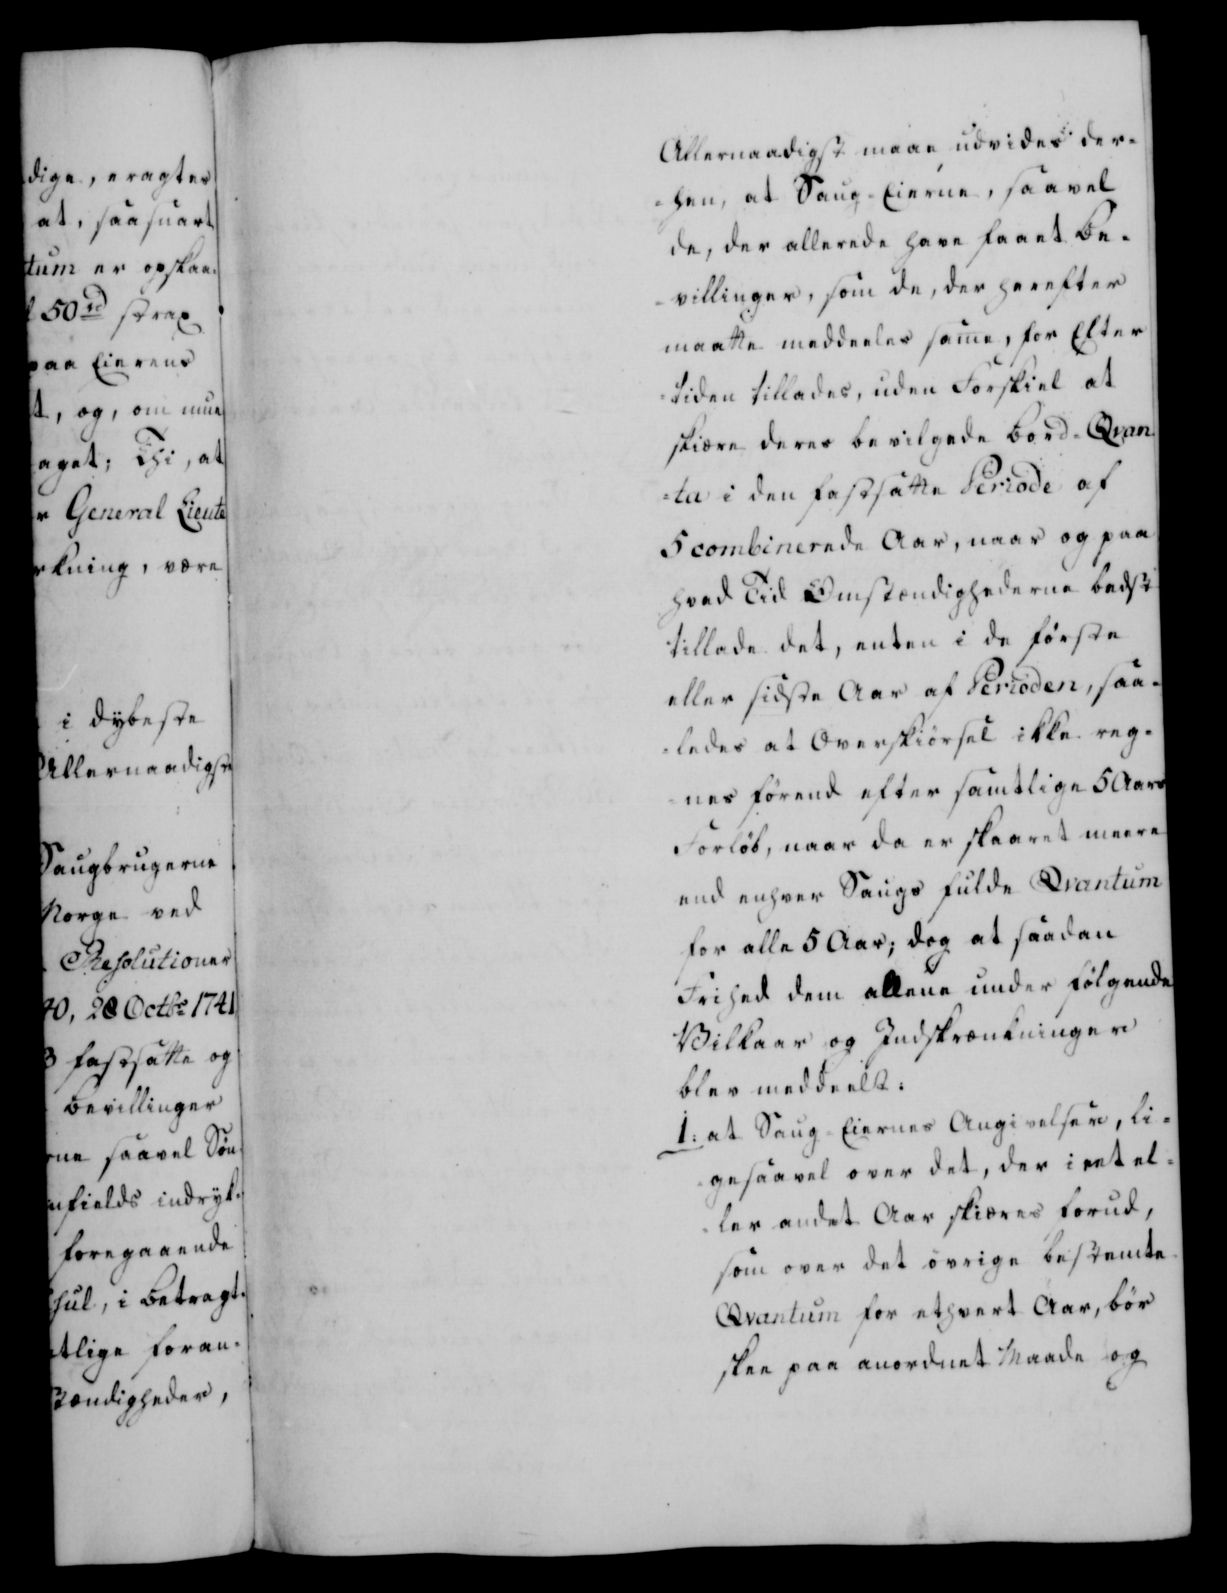 dige, eragtes
at, saasnart
tum er opskaa-
50 rd strax
paa Eierens
t, og, om mue
aget; Thi, at
r General Lieute
rkning, være
i dybeste
Allernaadigst
Saugbrugerne
Norge ved
Resolutioner
40, 28 Octbr 1741
3 fastsatte og
Bevillinger
rne saavel Søn
nfields indryk-
foregaaende
hul, i Betragt-
tlige foran-
stændigheder,
Allernaadigst maae udvides der-
-hen, at Saug-Eierne, saavel
de, der allerede have faaet Be-
-villinger, som de, der herefter
maatte meddeeles same, for Efter
-tiden tillades, uden Forskiel at
skiære deres bevilgede Bord-Qvan
-ta i den fastsatte Periode af
5 combinerede Aar, naar og paa
hvad Tid Omstændighederne bedst
tillade det, enten i de første
eller sidste Aar af Perioden, saa-
-ledes at Overskiørsel ikke reg-
-nes førend efter samtlige 5 Aars
Forløb, naar da er skaaret meere
end enhver Saugs fulde Qvantum
for alle 5 Aar; dog at saadan
Frihed dem allene under følgende
Vilkaar og Indskrænkninger
blev meddeelt:
1: at Saug-Eiernes Angivelser, li-
-gesaavel over det, der i eet el-
-ler andet Aar skiæres forud,
som over det øvrige bestemte
Qvantum for ethvert Aar, bør
skee paa anordnet Maade og